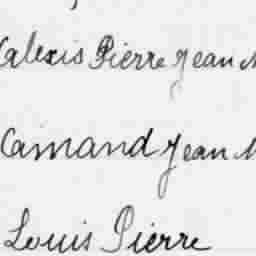 Alexis Pierre Jean M
Camand Jean M
Louis Pierre